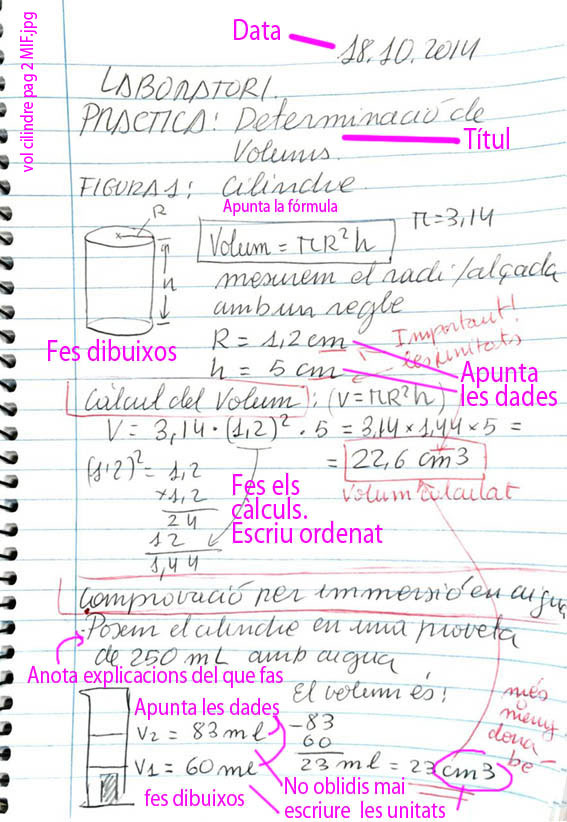 vol cilindre pag 2 MIF.jpg
Data
18.10.2014
LABORATORI.
PRACTICA: Determinació de
Volums.
Títul
FIGURA 1: Cilindre
Apunta la fórmula
R
h
Volum = πR²h
π=3,14
mesurem el radi/alçada
amb un regle
Fes dibuixos
R = 1,2 cm
h = 5 cm
Important!
les unitats
Apunta
les dades
Càlcul del Volum: (V=πR²h)
V = 3,14 · (1,2)² · 5 = 3,14 × 1,44 × 5 =
= 22,6 cm3
Volum calculat
(1'2)² = 1,2
×1,2
24
12
1,44
Fes els
càlculs.
Escriu ordenat
Comprovació per immersió en aigua
·Posem el cilindre en una proveta
de 250 mL amb aigua
Anota explicacions del que fas
Apunta les dades
V2 = 83 ml
V1 = 60 ml
fes dibuixos
El volum és:
-83
60
23 ml = 23 cm3
més
o
meny
dona
be
No oblidis mai
escriure les unitats